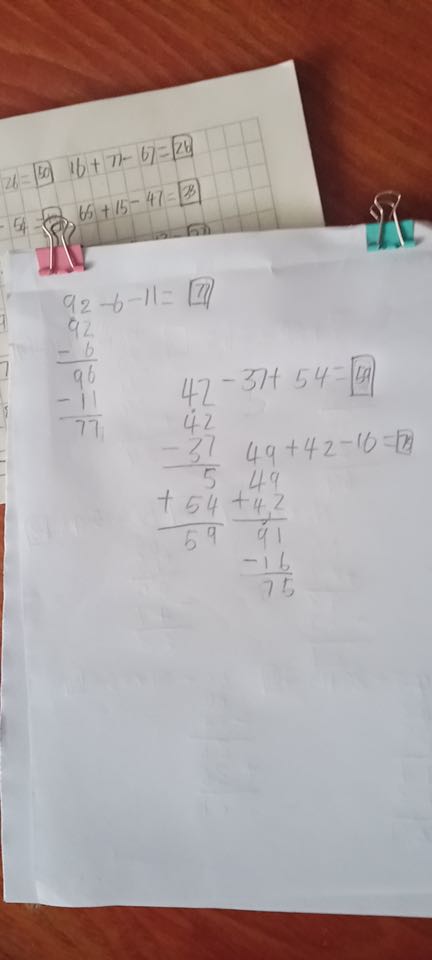 26 = 50 16 + 77 - 67 = 26
- 54 = 65 + 15 - 47 = 33
92 - 6 - 11 = 77
92
- 6
96
- 11
77
42 - 37 + 54 = 59
42
- 37
5
+ 54
59
49 + 42 - 16 = 75
49
+ 42
91
- 16
75